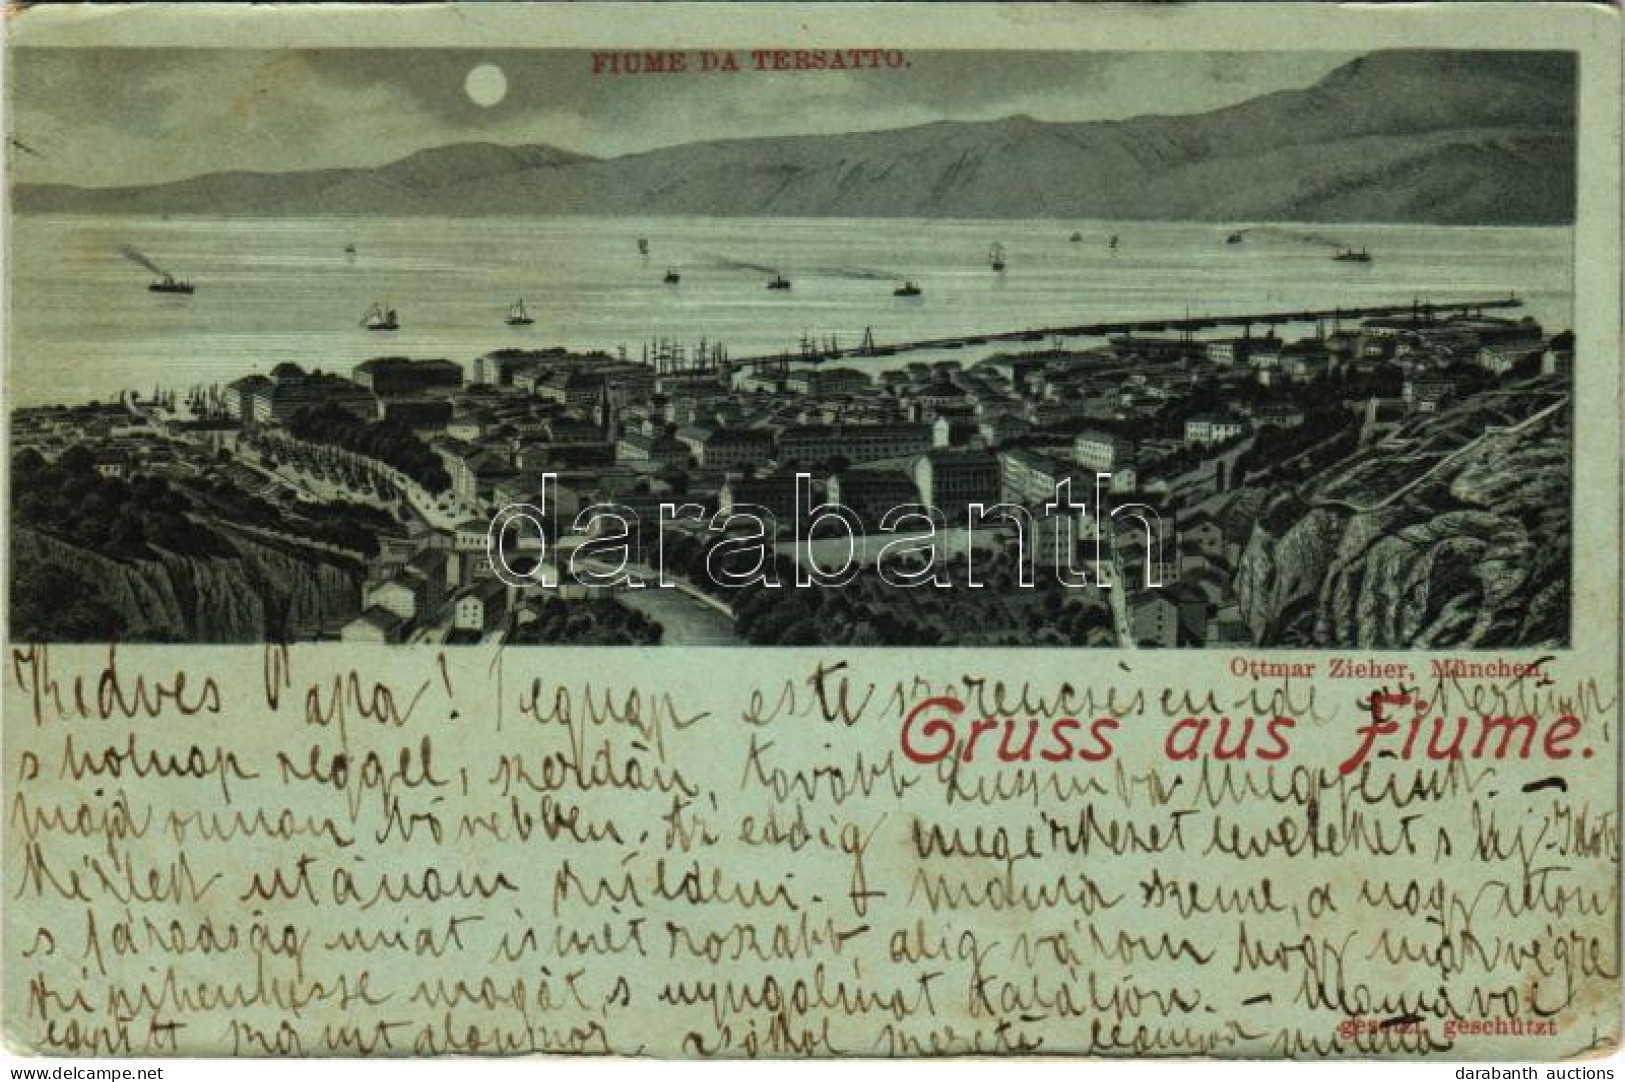 FIUME DA TERSATTO.
darabanth
Ottmar Zieher, München.
Gruss aus Fiume.
Kedves Papa! Tegnap este szerencsésen ide érkeztünk
s holnap reggel, szerdán, tovább Lussinba megyünk. –
majd onnan bővebben. Az eddig megérkezett leveleket s Uj-Időt
kérlek utánam küldeni. – Mama szeme, a nagy
s fáradság miat ismét rosszabb, alig várom hogy már végre
kipihenhesse magát, s nyugalmat találjon. – Mamával
együtt számtalanszor csókol szerető leányod
gesetzl. geschützt
delcampe.net
darabanth auctions